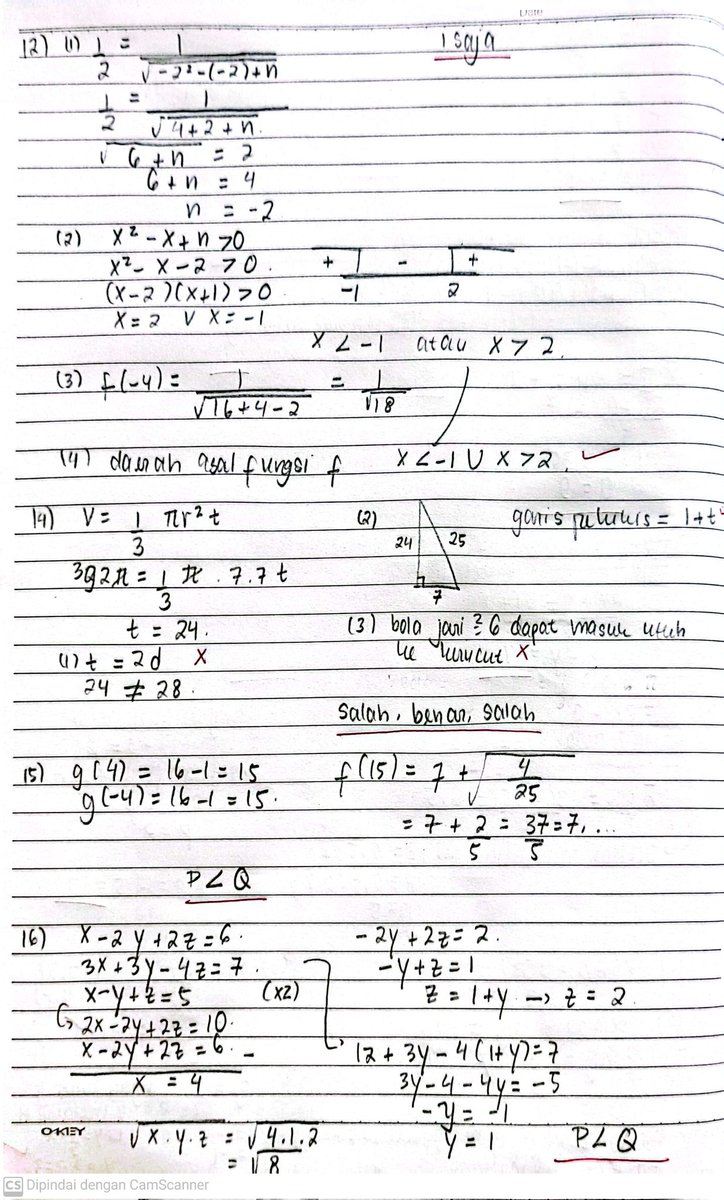 12) (1) 1/2 = 1/√-2²-(-2)+n
1 saja
1/2 = 1/√4+2+n
√6+n = 2
6+n = 4
n = -2
(2) x² - x + n >0
x² - x - 2 > 0
(x-2)(x+1) > 0
x = 2 V x = -1
+ - +
-1 2
x < -1 atau x > 2
(3) f(-4) = 1/√16+4-2 = 1/√18
(4) daerah asal fungsi f x < -1 U x > 2 ✓
14) V = 1/3 πr² t
392π = 1/3 π . 7.7 t
t = 24.
(1) t = 2d X
24 ≠ 28.
(2)
24 25
7
garis pelukis = 1+t
(3) bola jari² 6 dapat masuk utuh
ke kerucut X
salah, benar, salah
15) g(4) = 16-1 = 15
g(-4) = 16-1 = 15.
f(15) = 7 + √4/25
= 7 + 2/5 = 37/5 = 7,...
P < Q
16) x - 2y + 2z = 6.
3x + 3y - 4z = 7.
x - y + z = 5 (x2)
↳ 2x - 2y + 2z = 10.
x - 2y + 2z = 6. -
x = 4
√x.y.z = √4.1.2
= √8
- 2y + 2z = 2.
-y + z = 1
z = 1+y → z = 2
12 + 3y - 4(1+y) = 7
3y - 4 - 4y = -5
-y = -1
y = 1
P < Q
O-KEY
CS Dipindai dengan CamScanner